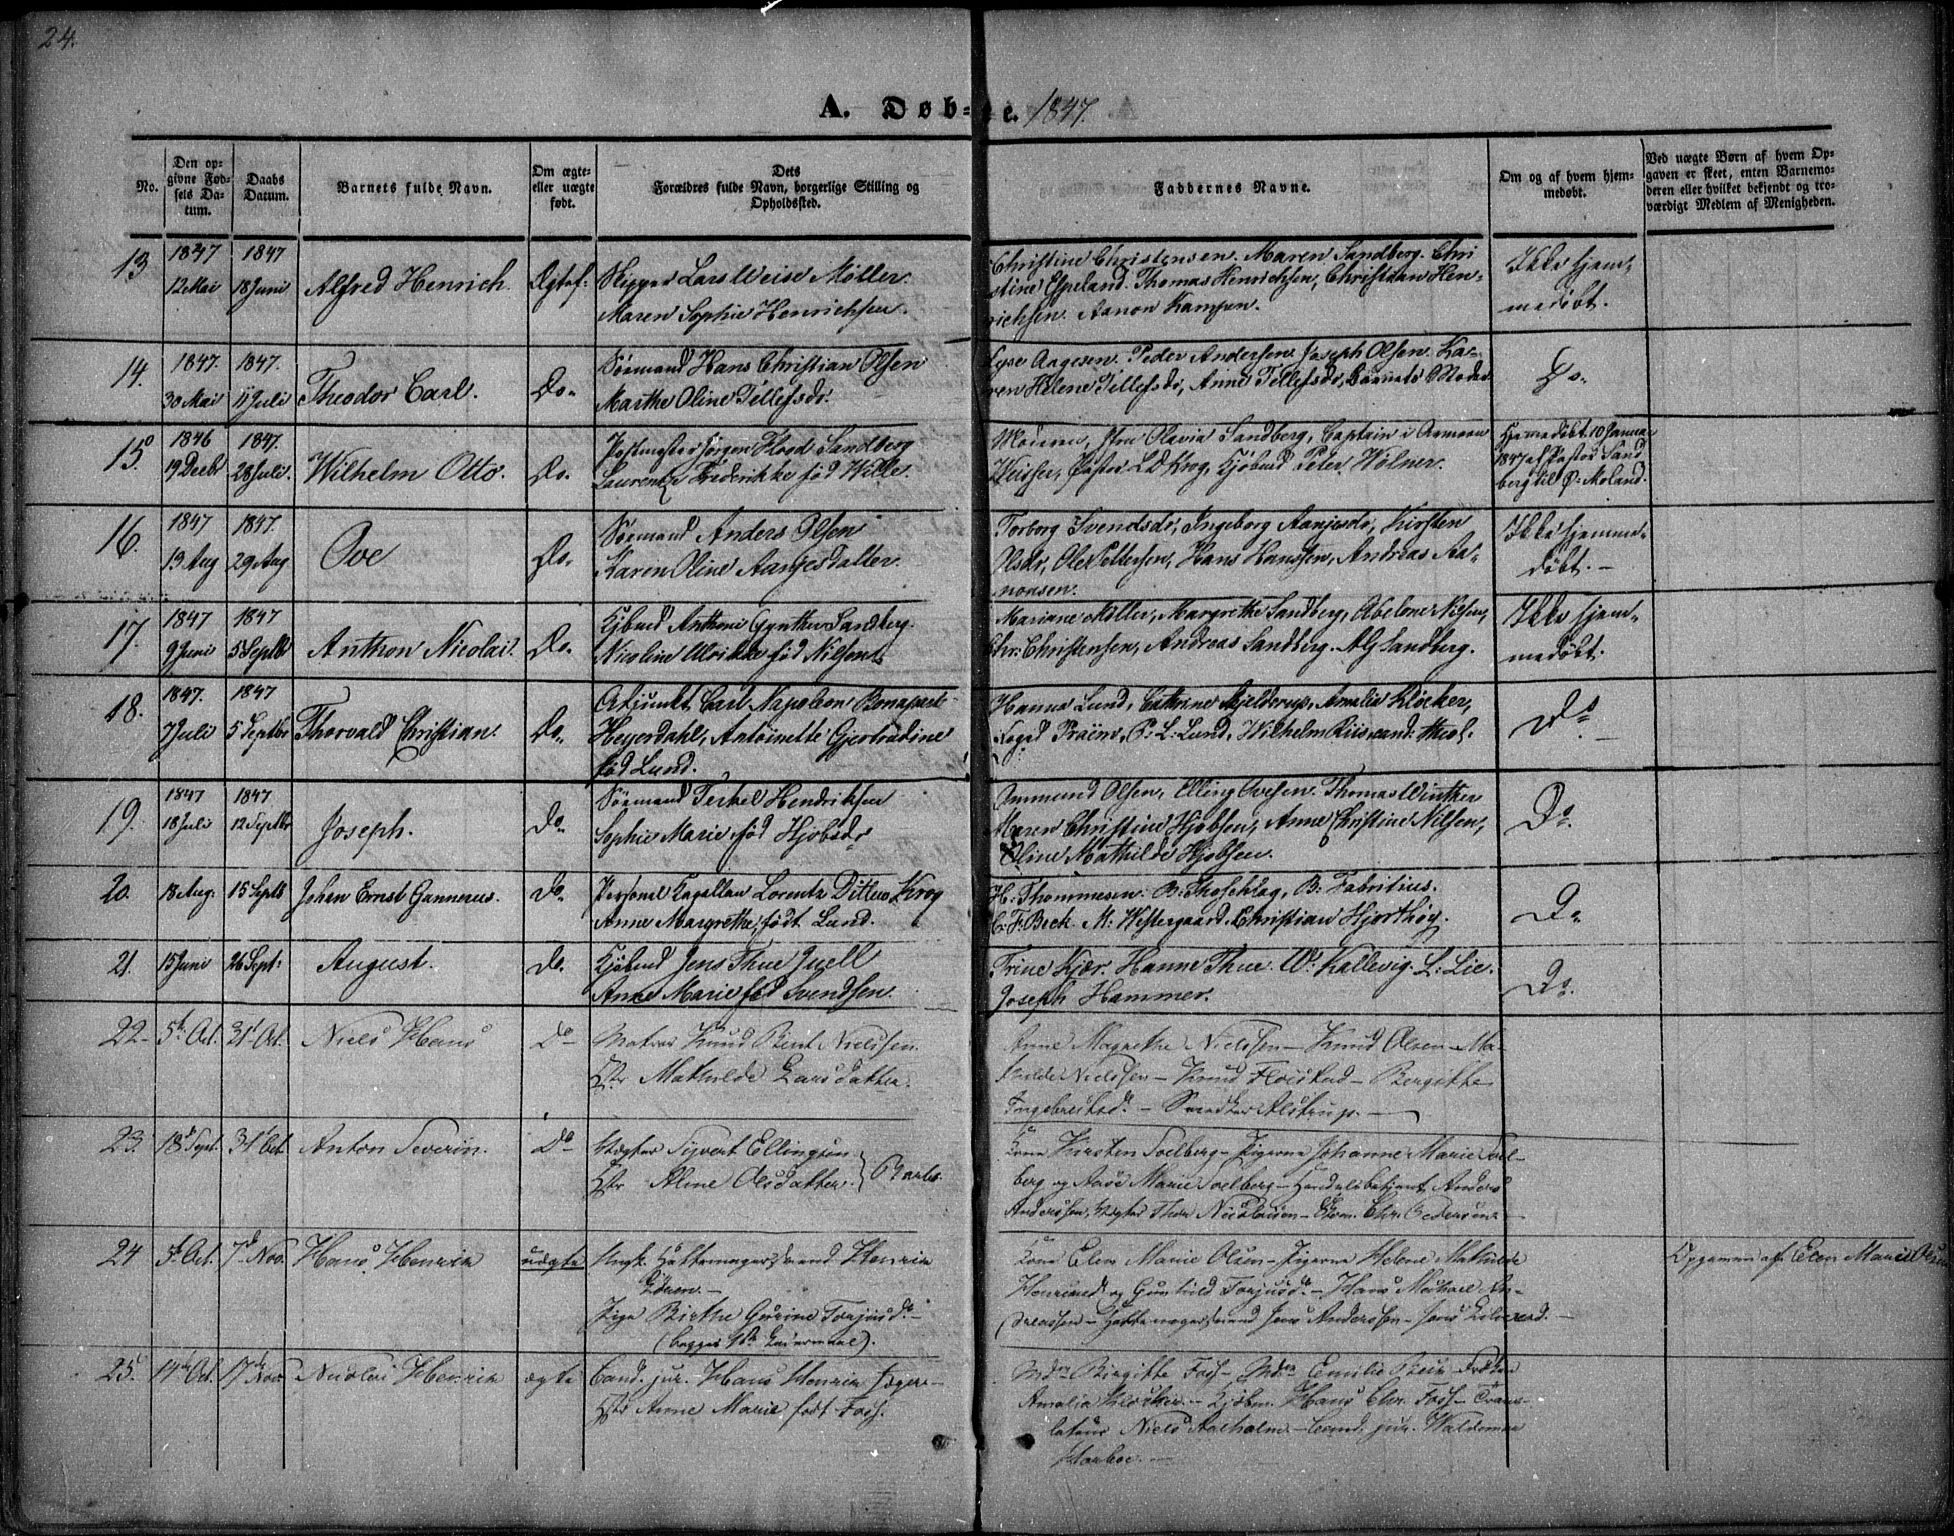 24.
A. Døb=te. 1847.
No.
Den op=
givne Fød=
sels Da=
tum.
Daabs
Datum.
Barnets fulde Navn.
Om ægte=
eller uægte
født.
Dets
Forældres fulde Navn, borgerlige Stilling og
Opholdssted.
Faddernes Navne.
Om og af hvem hjem=
medøbt.
Ved uægte Børn af hvem Op=
gaven er skeet, enten Barnemo=
deren eller hvilket bekjendt og tro=
værdigt Medlem af Menigheden.
13
1847
12 Mai
1847
18 Juni
Alfred Henrich.
Ægtef:
Skipper Lars Weise Møller.
Maren Sophie Henrichsen.
Christine Christensen. Maren Sandberg. Chri
stine Espeland. Thomas Henrichsen, Christian Hen=
richsen. Aanon Kampen.
Ikke hjem=
medøbt.
14.
1847.
30 Mai
1847.
11 Juli
Theodor Carl.
Do.
Sømand Hans Christian Olsen
Marthe Oline Tellefsdr.
Lyse Aagesen. Peder Andersen. Joseph Olsen. Ka=
ren Helene Tellefsdr, Anne Tellefsdr, Barnets Moder
Do.
15.
1846
19 Decbr
1847.
28 Juli.
Wilhelm Otto.
Do.
Postmester Jørgen Flood Sandberg
Laurentze Frederikke fød Wille.
Moderen, Olavia Sandberg, Captain i Armeen
Weisser, Pastor L D Krog, Kjøbmd Peter Wølner.
Hjemmedøbt 10 Januar
1847 af Pastor Sand
berg til Ø. Moland.
16.
1847
19 Aug
1847.
29 Aug
Ove
Do.
Sømand Anders Olsen
Karen Oline Aanjesdatter.
Torborg Svendsdr, Ingeborg Aanjesdr, Kirsten
Olsdr, Ole Pettersen, Hans Hanssen, Andreas Aa=
nonsen.
Ikke hjemme=
døbt. -
17.
1847
9 Juni
1847
5 Septbr
Anthon Nicolai.
Do.
Kjbmd Anthoni Gynther Sandberg.
Nicoline Ulrikke fød Nilsen.
Mariane Møller, Margrethe Sandberg, Abelone Nilsen,
Chr: Christensen, Andreas Sandberg. Alf Sandberg.
Ikke hjem=
medøbt.
18.
1847.
7 Juli
1847
5 Septbr
Thorvald Christian.
Do.
Adjunkt Carl Napoleon Bonaparte
Heyerdahl, Antoinette Gjertrudine
fød Lund.
Hanna Lund, Cathrine Mjelderup, Amalia Kløcker,
Foged Prøens, P: L: Lund, Wilhelm Riis cand: theol.
Do
19.
1847
18 Juli
1847
12 Septbr
Joseph.
Do.
Sømand Terkel Hendriksen
Sophie Marie fød Hjobsdr
Ommund Olsen, Elling Ovesen. Thomas Winther
Maren Christine Hjobsen, Anne Christine Nilsen,
Oline Mathilde Hjobsen.
Do.
20.
18 Aug.
15 Septb
Johan Ernst Gunnerus.
Do.
Personel Capellan Lorentz Ditlev Krog
Anne Margrethe, født Lund.
H: Thommesen. B: B: Fabritius.
C: F: Beck. M: Westergaard. Christian Hjorthøy.
Do
21.
15 Juni
26 Sept:
August.
do.
Kjøbmd Jens Thue Juell
Anne Marie fød Svendsen.
Trine Kjær. Hanne Thue. W: Kallevig. L: Lie.
Joseph Hammer.
Do.
22-
5te Oct.
31t Oct.
Niels Hans
Do
Matros Knud Bent Nielssen.
Hstr Mathilde Larsdatter.
Anne Magrethe Nielssen - Knud Olsen - Ma-
thilde Nielssen - Knud Floistad - Bergitte
Ingebretsd. - Alstrup. -
23.
18d Sept.
31t Oct.
Anton Severin.
Do
Vægter Syvert Ellingsen
Hstr Aline Olsdatter. } Barbo.
Kone Kirsten Soelberg - Pigerne Johanne Marie Soel-
berg og Marie Soelberg - Handelsbetjent Anders
Anderssen, Vægter Thor Nicolaisen - Chr. Pedersen. -
24
5te Oct.
7d Nov.
Hans Henrik
uægte
Ungk. Hattemagersvend Henrik
Pige Birthe Gurine Torjusd. -
(begges 1ste Leiermaal).
Kone Elen Marie Olsen - Pigerne Helene Mathilde
og Gunhild Torjusd. - Hans Michael An-
dreassen - Hattemagersvend Jens Anderssen - Jens -
Opgaven af Elen Marie Olsen
25.
14de Oct.
17de Nov
Nicolai Henrik
ægte
Cand. jur. Hans Henrik
Hstr Anne Marie født Foss.
Mdm Birgitte Foss - Mdm Emilie Frøken
Amalia Kløcker. - Kjøbm. Hans Chr. Foss - Trans-
lateur Niels Aalholm - Cand. jur. Waldemar
Harboe. -